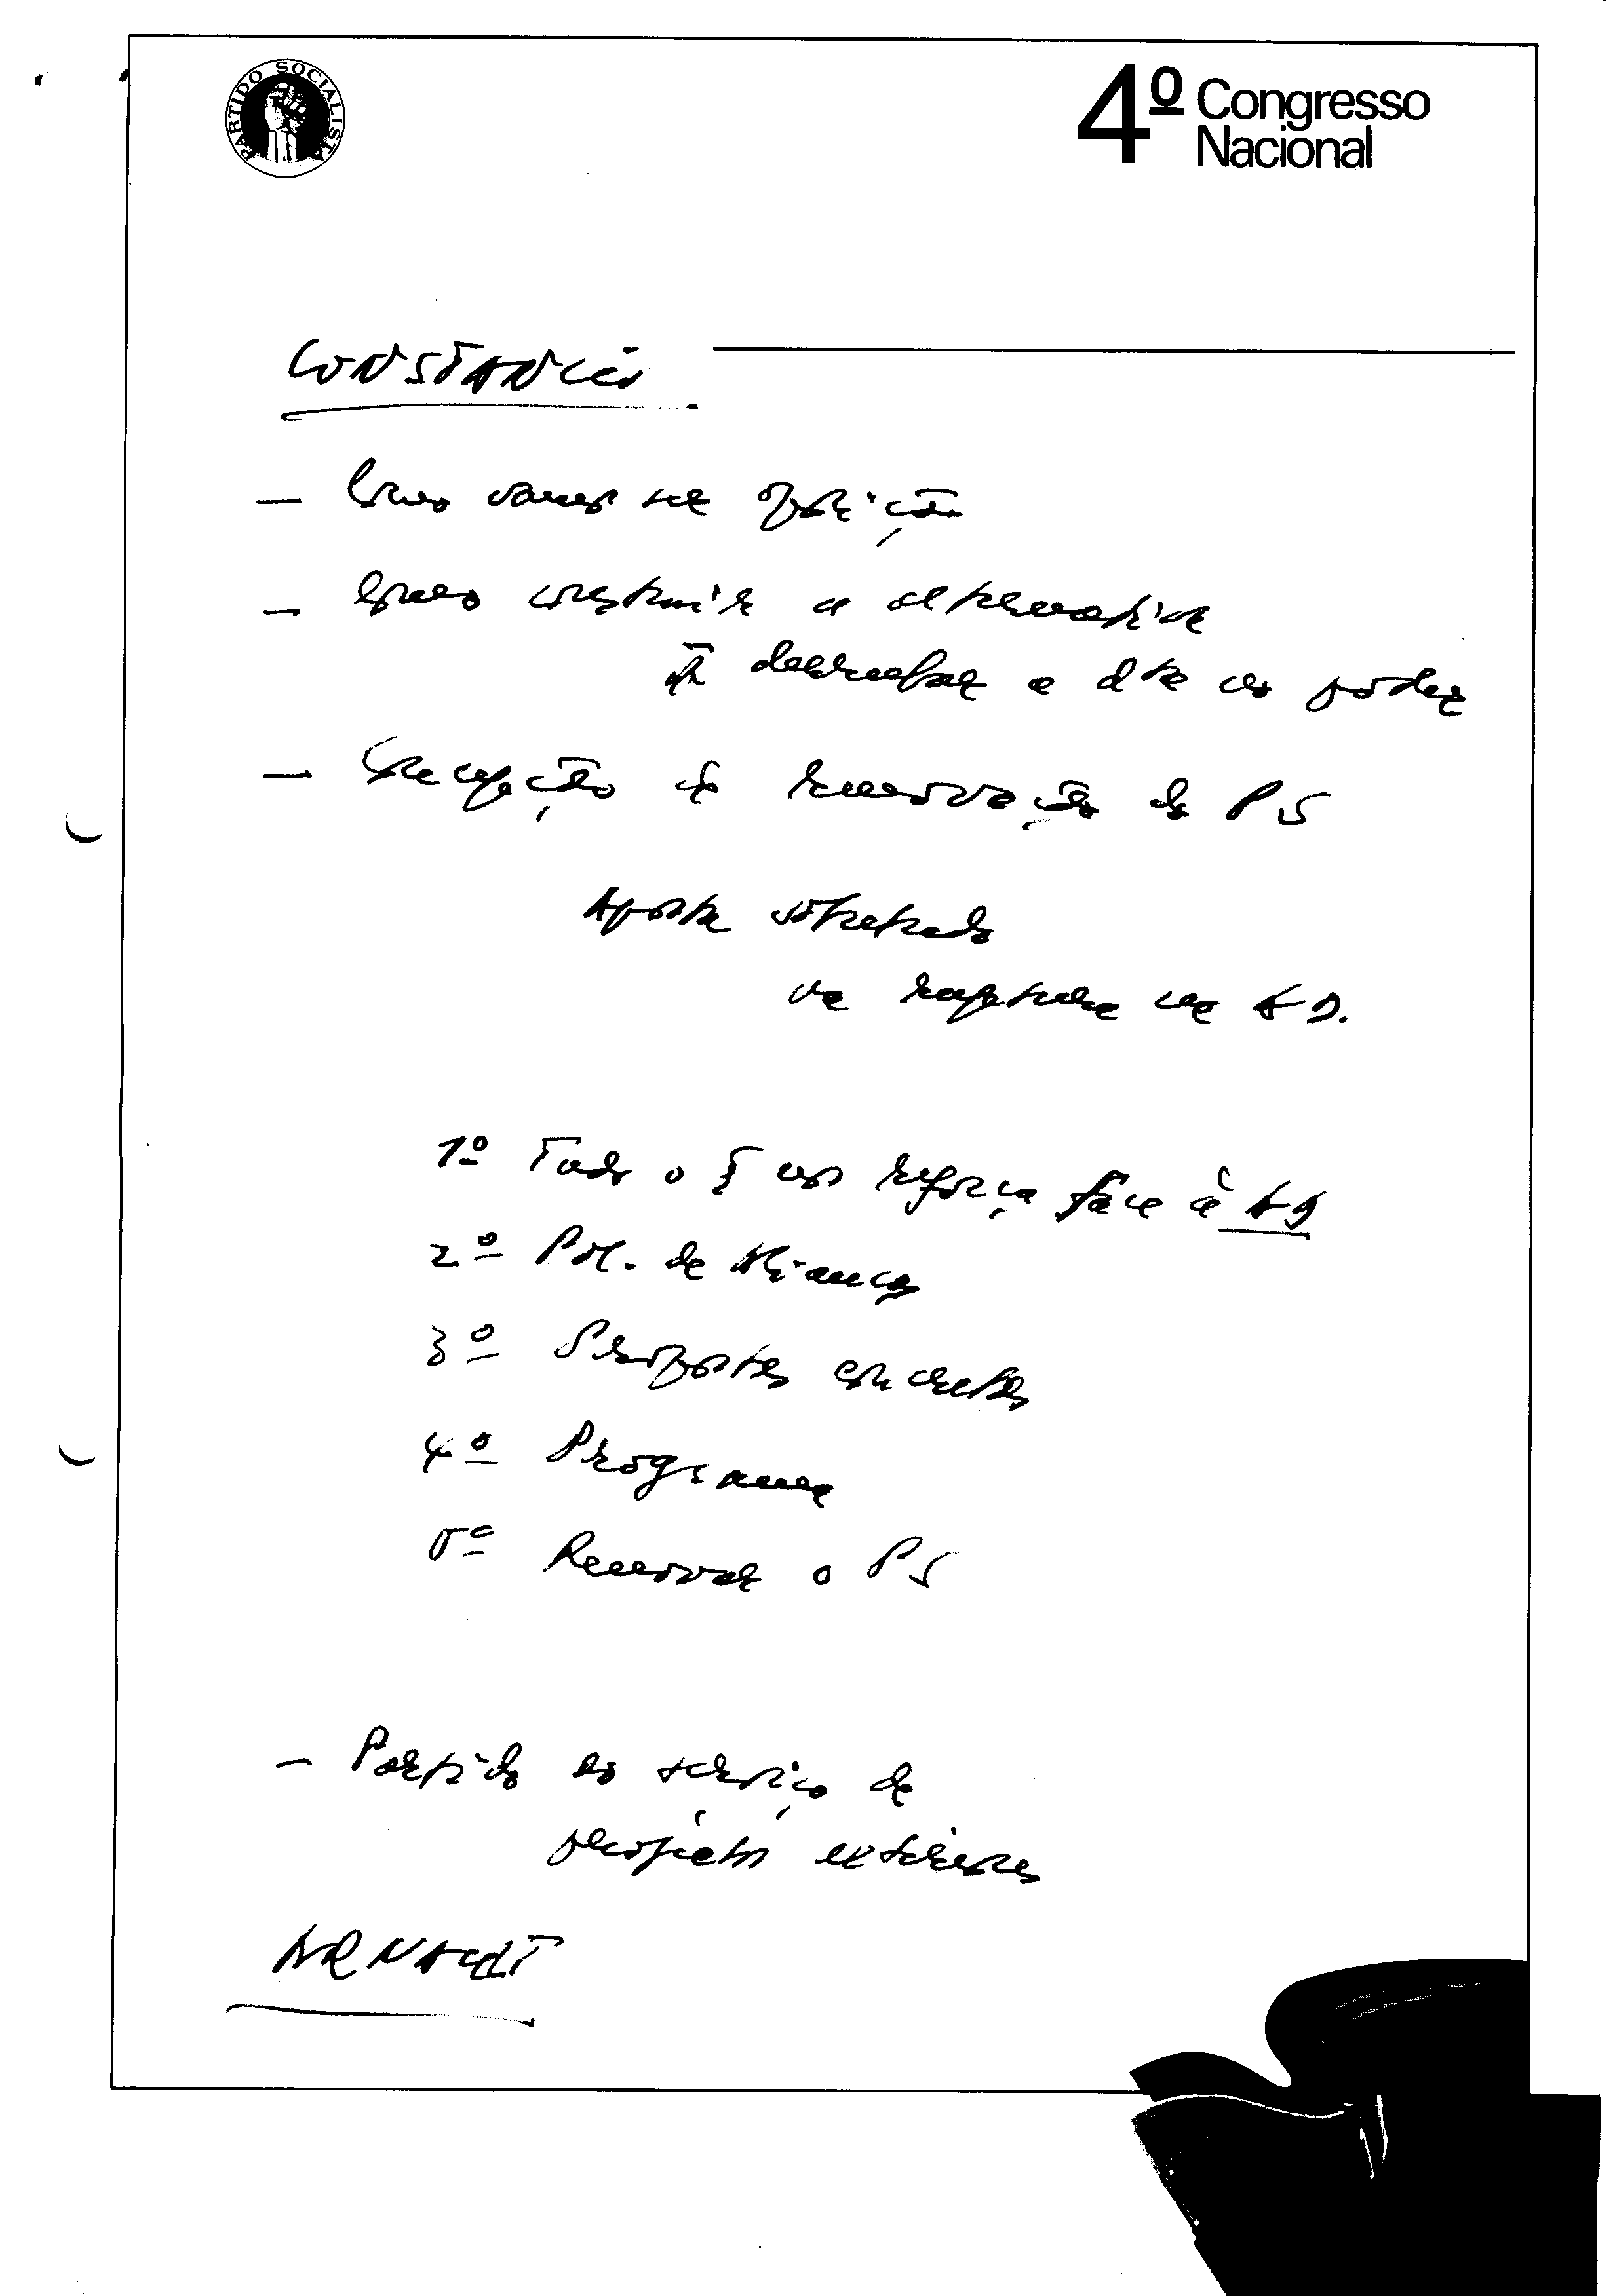 PARTIDO SOCIALISTA
4º Congresso
Nacional
CONSTANCIO
— Como vamos ser oposição
— Como construir a alternativa
derrubar a dta no poder
— Concepção da renovação do PS
Aposta sobretudo
na ruptura na AD.
1º Tudo o q nos reforça face à AD
2º Pol. de Alianças
3º Propostas concretas
4º Programa
5º Renovar o PS
— Partido ao serviço de
projectos exteriores
ARNAUT